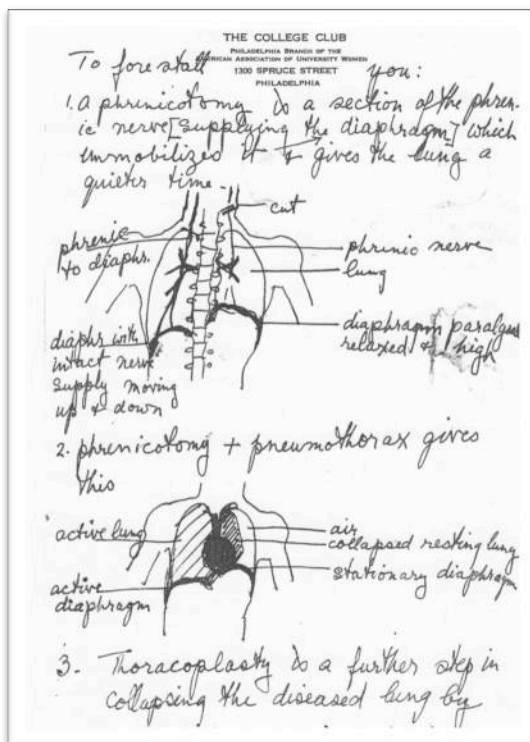 THE COLLEGE CLUB
PHILADELPHIA BRANCH OF THE
AMERICAN ASSOCIATION OF UNIVERSITY WOMEN
1300 SPRUCE STREET
PHILADELPHIA
To forestall you:
1. a phrenicotomy is a section of the phren-
ic nerve [supplying the diaphragm] which
immobilized it + gives the lung a
quieter time.
cut
phrenic
to diaphr.
phrenic nerve
lung
diaphr with
intact nerve
supply moving
up + down
diaphragm
relaxed + high
2. phrenicotomy + pneumothorax gives
this
active lung
active
diaphragm
air
collapsed resting lung
stationary diaphragm
3. Thoracoplasty is a further step in
collapsing the diseased lung by